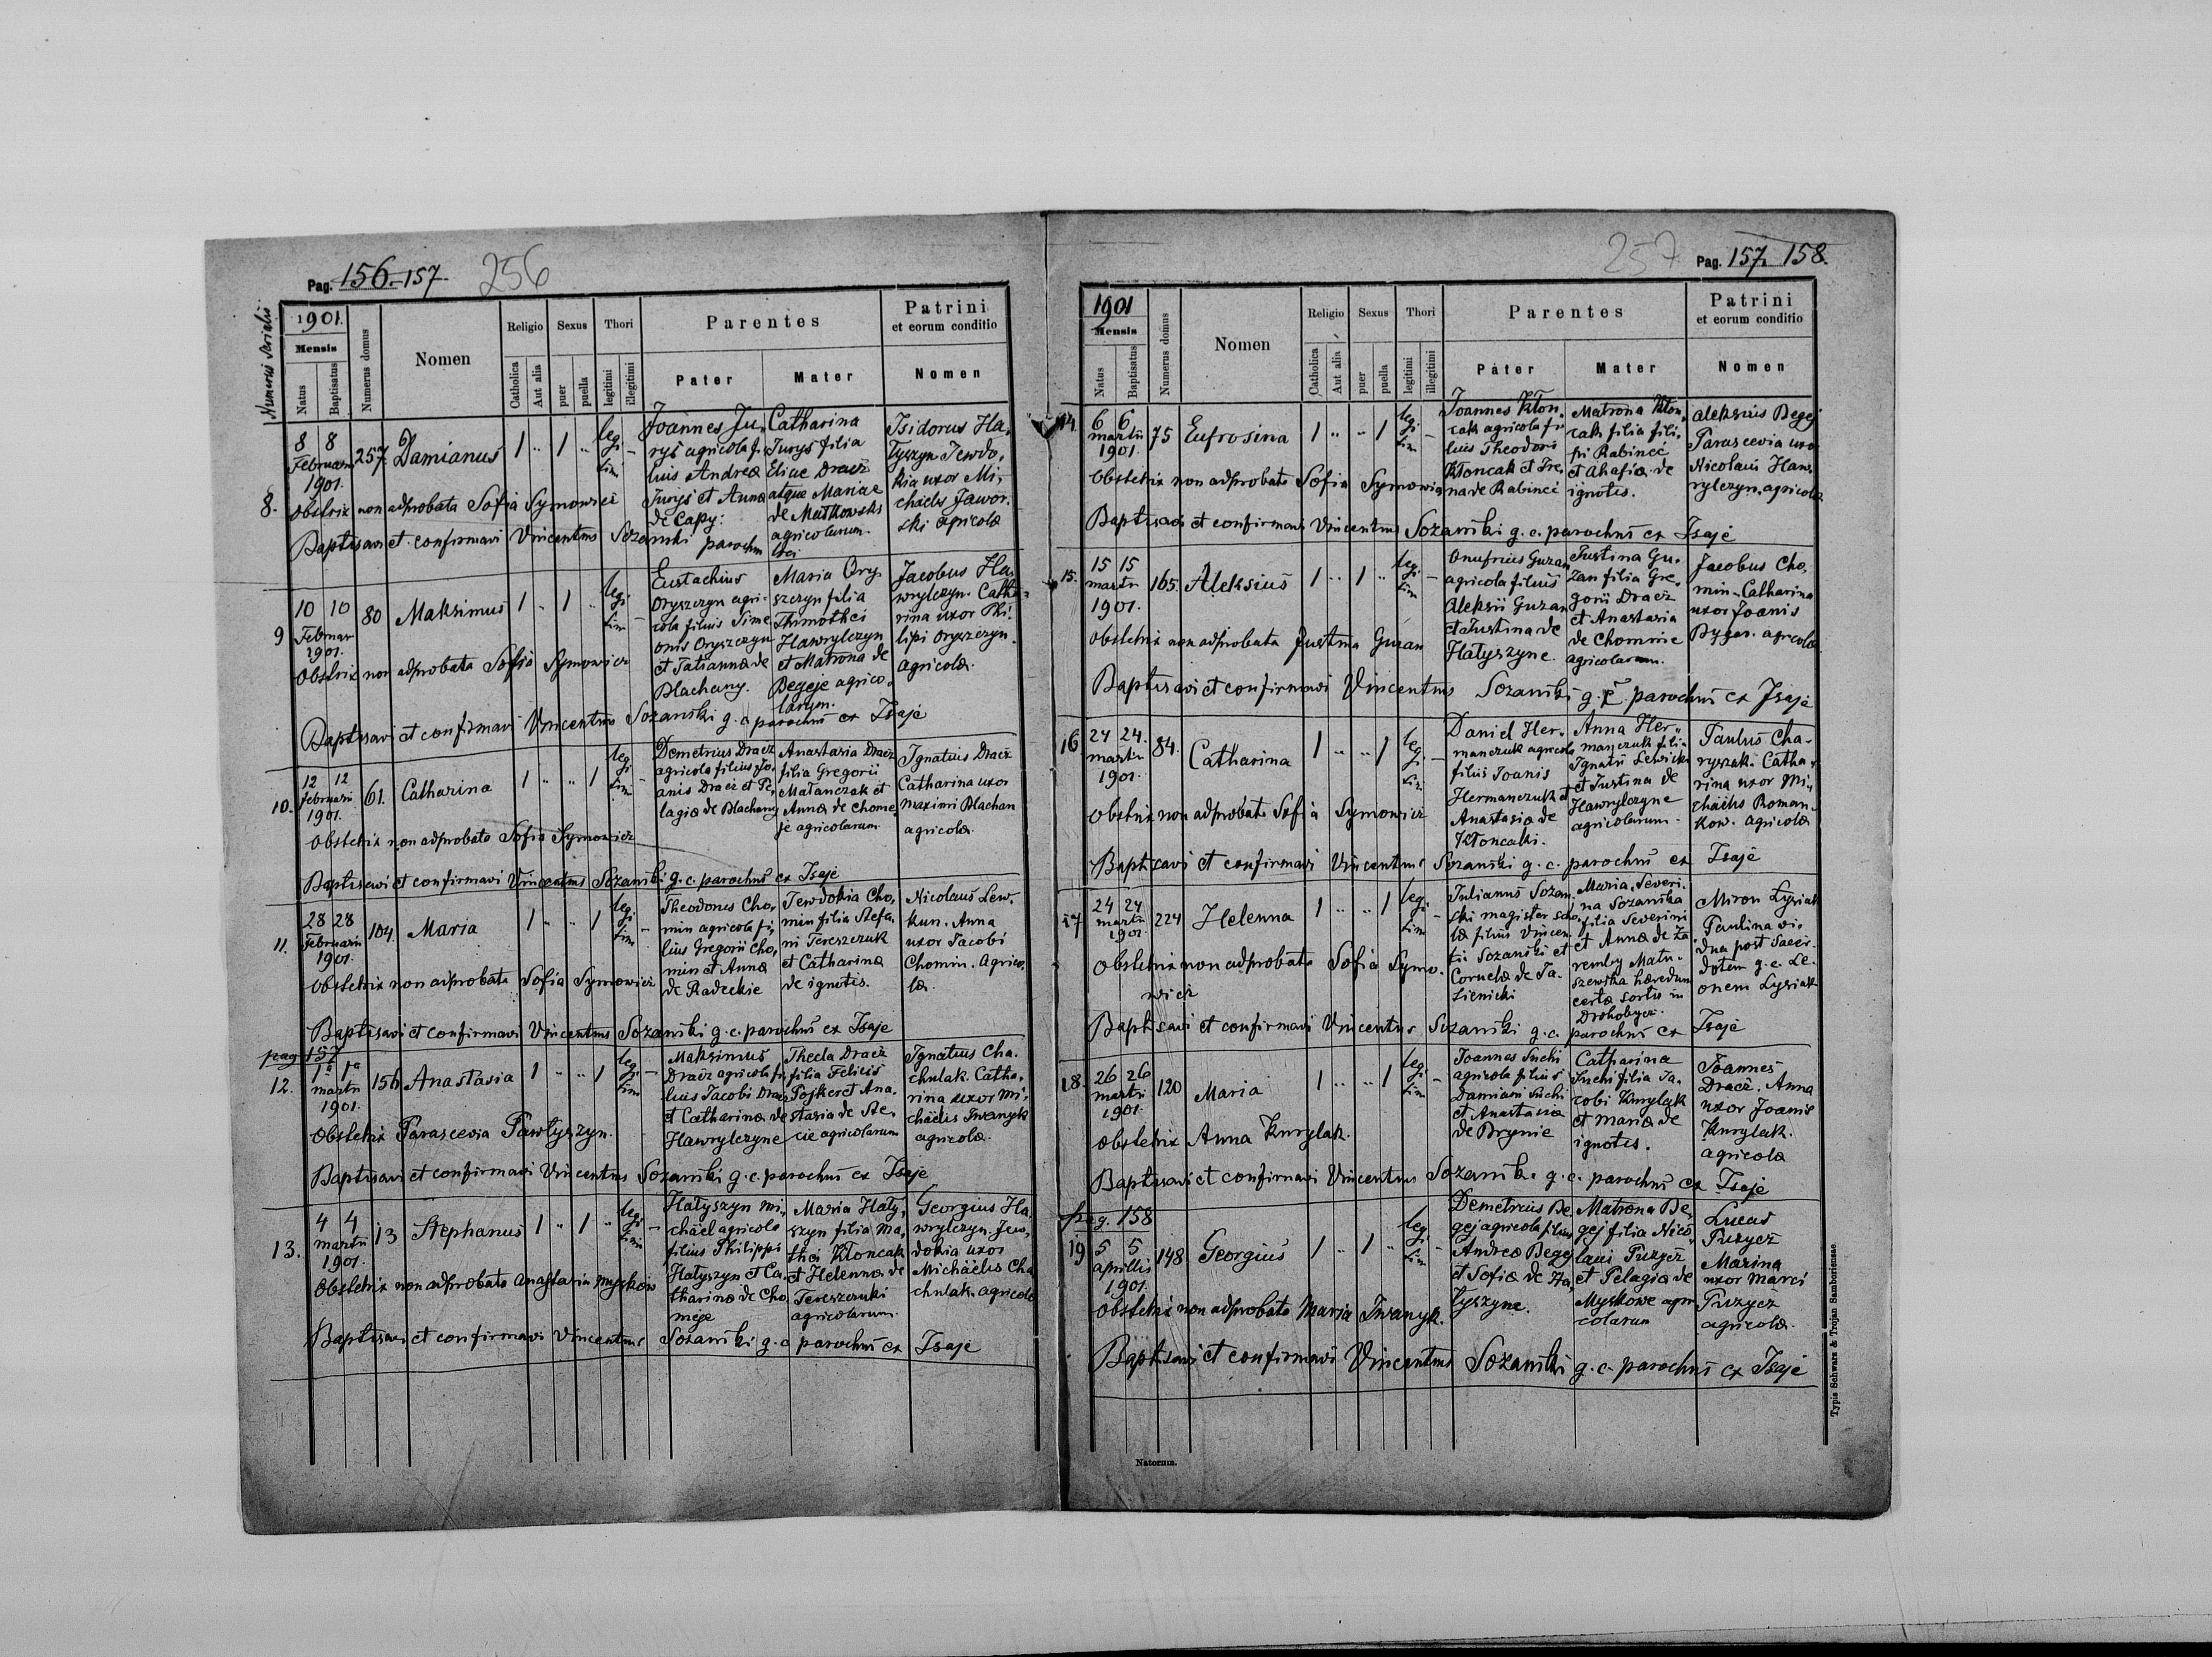 Pag. 156.-157. 256
Numerus serialis
1901.
Mensis
Natus
Baptisatus
Numerus domus
Nomen
Religio
Catholica
Aut alia
Sexus
puer
puella
Thori
legitimi
illegitimi
Parentes
Pater
Mater
Patrini
et eorum conditio
Nomen
8.
8 8
Februarii
1901.
257.
Damianus
1 .. 1 ..
legi-
tim
Joannes Ju,
rys agricola fi-
lius Andreæ
Jurys et Anna
de Capy:
Catharina
Jurys filia
Eliae Dracz
atque Mariae
de Matkowski
agricolarum.
Isidorus Ha,
łyszyn Jewdo,
kia uxor Mi,
chaelis Jawor.
ski agricolæ
Obstetrix non adprobata Sofia Symowicz
Baptisavi et confirmavi Vincentius Sozański parochus loci
9
10 10
Februar
1901.
80
Maksimus
1 .. 1 ..
legi-
tim
Eustachius
Oryszczyn agri-
cola filius Sime
onis Oryszczyn
et Tatianna de
Blachany.
Maria Ory-
szczyn filia
Thimothei
Hawrylczyn
et Matrona de
Begeje agrico-
larum.
Jacobus Ha,
wrylczyn. Catha-
rina uxor Phi-
lipi Oryszczyn.
agricolæ.
Obstetrix non adprobata Sofia Symowicz
Baptisavi et confirmavi Vincentius Sozański g. c parochus ex Isaje
10.
12 12
Februarii
1901.
61.
Catharina
1 .. .. 1
legi
tim
Demetrius Dracz
agricola filius Jo-
anis Dracz et Pe-
lagia de Blachany
Anastasia Dracz
filia Gregorii
Matanczak et
Anna de Chome-
je agricolarum
Ignatius Dracz
Catharina uxor
Maximi Blachan
agricolæ.
Obstetrix non adprobata Sofia Symowicz
Baptisavi et confirmavi Vincentius Sozański g. c. parochus ex Isaje
11.
28 28
Februarii
1901.
104.
Maria
1 .. .. 1
legi-
tim
Theodorus Cho,
min agricola fi,
lius Gregorii Cho,
min et Anna
de Radeckie
Jewdokia Cho,
min filia Stefa,
ni Tereszczuk
et Catharina
de ignotis.
Nicolaus Lew.
kun. Anna
uxor Jacobi
Chomin. Agrico,
læ.
Obstetrix non adprobata Sofia Symowicz
Baptisavi et confirmavi Vincentius Sozański g. c. parochus ex Isaje
pag 157
12.
1a 1a
martii
1901.
156
Anastasia
1 .. .. 1
legi
tim
Maksimus
Dracz agricola fi,
lius Jacobi Dracz
et Catharina de
Hawrylczyne
Thecla Dracz
filia Felicis
Pojker et Ana.
stasia de Ste,
cie agricolarum
Ignatius Cha.
chulak. Catha,
rina uxor Mi,
chaelis Iwanyk
agricolæ.
Obstetrix Parascevia Pawłyszyn.
Baptisavi et confirmavi Vincentius Sozański g. c. parochus ex Isaje
13.
4 4
martii
1901.
13
Stephanus
1 .. 1 ..
legi
tim
Hałyszyn Mi,
chael agricola
filius Philippi
Hałyszyn et Ca.
tharina de Cho
meje
Maria Hały,
szyn filia Ma,
thei Kłoncak
et Helenna de
Tereszczuki
agricolarum.
Georgius Ha,
wrylczyn. Jew,
dokia uxor
Michaelis Cha
chulak agricolæ
Obstetrix non adprobata Anastasia Myskow
Baptisavi et confirmavi Vincentius Sozański g. c parochus ex Isaje
257 Pag. 157. 158.
1901
Mensis
Natus
Baptisatus
Numerus domus
Nomen
Religio
Catholica
Aut alia
Sexus
puer
puella
Thori
legitimi
illegitimi
Parentes
Pater
Mater
Patrini
et eorum conditio
Nomen
14.
6 6
martii
1901.
75
Eufrosina
1 .. .. 1
legi
tim
Joannes Kłon,
cak agricola fi-
lius Theodori
Kłoncak et Ire,
na de Rabinec
Matrona Kłon,
cak filia fili-
pi Rabinec
et Ahafia de
ignotis.
Aleksius Begej
Parascevia uxor
Nicolaus Haw-
rylczyn. agricolæ
Obstetrix non adprobata Sofia Symowicz
Baptisavi et confirmavi Vincentius Sozański g. c. parochus ex Isaje
15.
15 15
martii
1901.
165.
Aleksius
1 .. 1 ..
legi
tim
Onufrius Guzan
agricola filius
Aleksii Guzan
et Justina de
Hałyszyne.
Justina Gu-
zan filia Gre,
gorii Dracz
et Anastasia
de Chomine
agricolarum.
Jacobus Cho,
min - Catharina
uxor Joanis
Bygar. agricolæ
Obstetrix non adprobata Justina Guzan
Baptisavi et confirmavi Vincentius Sozański g. c. parochus ex Isaje
16.
24 24.
martii
1901.
84.
Catharina
1 .. .. 1
legi
tim
Daniel Her-
manczuk agricola
filius Joanis
Hermanczuk et
Anastasia de
Kłoncaki.
Anna Her-
manczuk filia
Ignatii Lewicki
et Justina de
Hawrylczyne
agricolarum.
Paulus Cha-
ryszak. Catha,
rina uxor Mi,
chaelis Roman-
kow. agricolæ
Obstetrix non adprobata Sofia Symowicz
Baptisavi et confirmavi Vincentius Sozański g. c. parochus ex Isaje
17
24 24
martii
1901.
224
Helenna
1 .. .. 1
legi
tim
Julianus Sozan.
ski magister scho,
læ filius Vincen.
tii Sozański et
Cornela de Ja-
sienicki
Maria Severi.
na Sozańska
filia Severini
et Anna de Za
remby Matu-
szewska hæredum
certæ sortis in
Drohobycz.
Miron Lysiak
Paulina vi-
dua post Sacer-
dotem g. c. Le-
onem Lysiak
Obstetrix non adprobata Sofia Symo-
wicz
Baptisavi et confirmavi Vincentius Sozański g. c. parochus ex Isaje
18.
26 26
martii
1901.
120
Maria
1 .. .. 1
legi
tim
Joannes Suchi
agricola filius
Damiani Suchi
et Anastasia
de Brynie
Catharina
Suchi filia Ja.
cobi Kurylak
et Maria de
ignotis.
Joannes
Dracz. Anna
uxor Joanis
Kurylak.
agricolæ
Obstetrix Anna Kurylak.
Baptisavi et confirmavi Vincentius Sozański g. c. parochus ex Isaje
pag. 158
19
5 5
aprillis
1901.
148
Georgius
1 .. 1 ..
legi
tim
Demetrius Be.
gej agricola filius
Andreæ Begej
et Sofia de Ha,
łyszyne.
Matrona Be,
gej filia Nico-
laui Puzycz
et Pelagia de
Myskowe agri
colarum
Lucas
Puzycz
Marina
uxor Marci
Puzycz
agricolæ.
Obstetrix non adprobata Maria Iwanyk.
Baptisavi et confirmavi Vincentius Sozański g. c. parochus ex Isaje
Natorum.
Typis Schwarz & Trojan Samboriensae